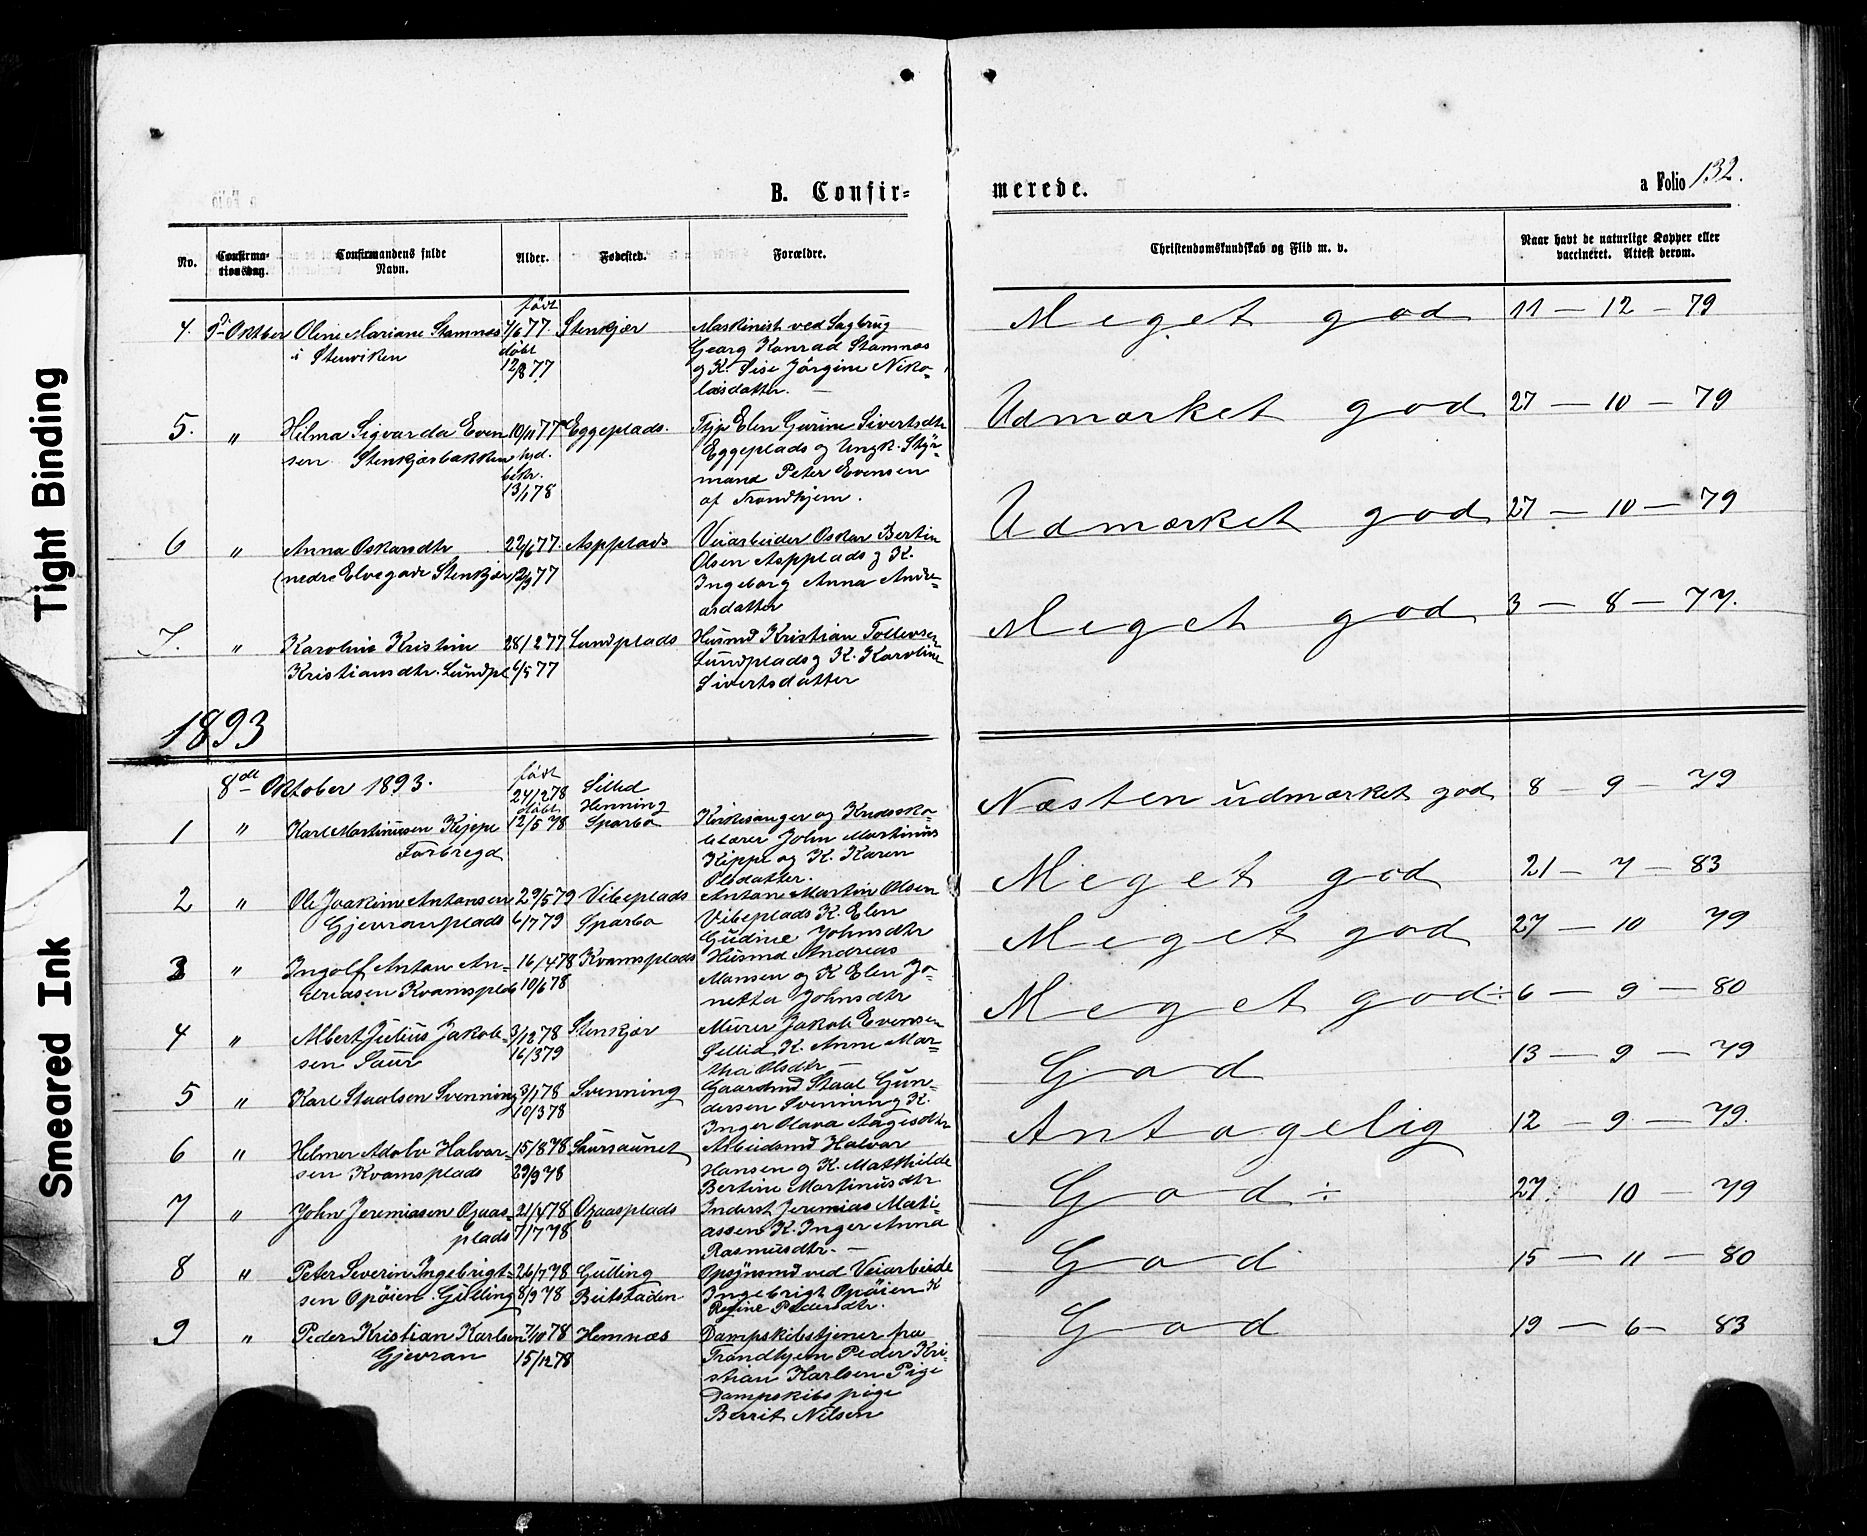 Tight Binding
Smeared Ink
B. Confir=
merede.
a Folio 132.
No.
Confirma-
tionsdag.
Confirmandens fulde
Navn.
Alder.
Fødested.
Forældre.
Christendomskundskab og Flid m. v.
Naar havt de naturlige Kopper eller
vaccineret. Attest derom.
4. Oktber Oline Mariane Stamnes
i Stenviken
født
7/6 77.
døbt
12/8 77
Stenkjær
Maskinist ved Sagbrug
Georg Konrad Stamnæs
og K. Sise Jørgine Niko-
laisdatter. —
Meget god
11 — 12 — 79
5. " Hilma Sigvarda Even
sen Stenkjærbakken
10/11 77
hsd.
bekr.
13/1 78
Eggeplads.
Elen Gurine Sivertsdtr
Eggeplads og Ungk. Styr-
mand Peter Evensen
af Trondhjem.
Udmærket god
27 — 10 — 79
6 " Anna Oskarsdtr
(nedre Elvegade Stenkjær
22/6 77.
12/9 77
Aspplads
Veiarbeider Oskar Bertin
Olsen Aspplads og K.
Ingeborg Anna Andre-
asdatter
Udmærket god
27 — 10 — 79
7. " Karoline Kristine
Kristiansdtr. Lundpl
28/12 77
6/5 77
Lundplads
Husmd Kristian Tollevsen
Lundplads og K. Karoline
Sivertsdatter
Meget god
3 — 8 — 77.
1893
8de Oktober 1893.
1 " Karl Martinusen Kippe
Førbregd
født
24/2 78
døbt
12/5 78
Silled
Henning
Sparbo
Kirkesanger og Kredssko-
lelærer John Martinus
Kippe og K. Karen
Olsdatter.
Næsten udmærket god
8 — 9 — 79
2 " Ole Joakim Antonsen
Gjevranplads
29/5 79
6/7 79
Vibeplads
Sparbo
Antone Martin Olsen
Vibeplads K. Elen
Gudine Johnsdtr
Meget god
21 — 7 — 83
3 " Ingolf Anton An-
dreasen Kvamsplds
16/4 78
10/6 78
Kvamsplads
Husmd Andreas
Mansen og K Elen Jo-
netta Johnsdtr
Meget god
27 — 10 79
4 " Albert Julius Jakob-
sen Saur
3/12 78
16/3 79
Stenkjær
Murer Jakob Evensen
Sellid, K. Anne Mar-
tha Olsdtr —
Meget god ÷
6 — 9 — 80
5 " Karl Staalsen Svenning
3/1 78
10/3 78
Svenning
Gaardmd Staal Gun-
dersen Svenning K.
Inger Olava Aagesdtr
God
13 — 9 — 79
6 " Helmer Adolv Halvor-
sen Kvamsplads
15/8 78
29/9 78
Saursaunet
Arbeidsmd Halvor
Hansen og K. Matthilde
Bertine Martinusdtr
Antagelig
12 — 9 — 79.
7 " John Jeremiasen Ogaas-
plads
21/4 78
7/7 78
Ogaasplads
Inderst Jeremias Mati-
assen K. Inger Anna
Rasmusdtr. —
God ÷
27. 10 — 79
8 " Peter Severin Ingebrigt-
sen Opøien. Gulling
26/7 78
8/9 78
Gulling
Beitstaden
Opsynsmd ved Veiarbeide
Ingebrigt Opøien K
Regine Pedersdtr.
God
15 — 11 — 80
9 " Peder Kristian Karlsen
Gjevran
7/10 78
15/12 78
Hemnæs
Dampskibstjener fra
Trondhjem Peder Kri-
stian Karlsen Pige
Dampskibspige
Berrit Nilsen
God
19 — 6 — 83